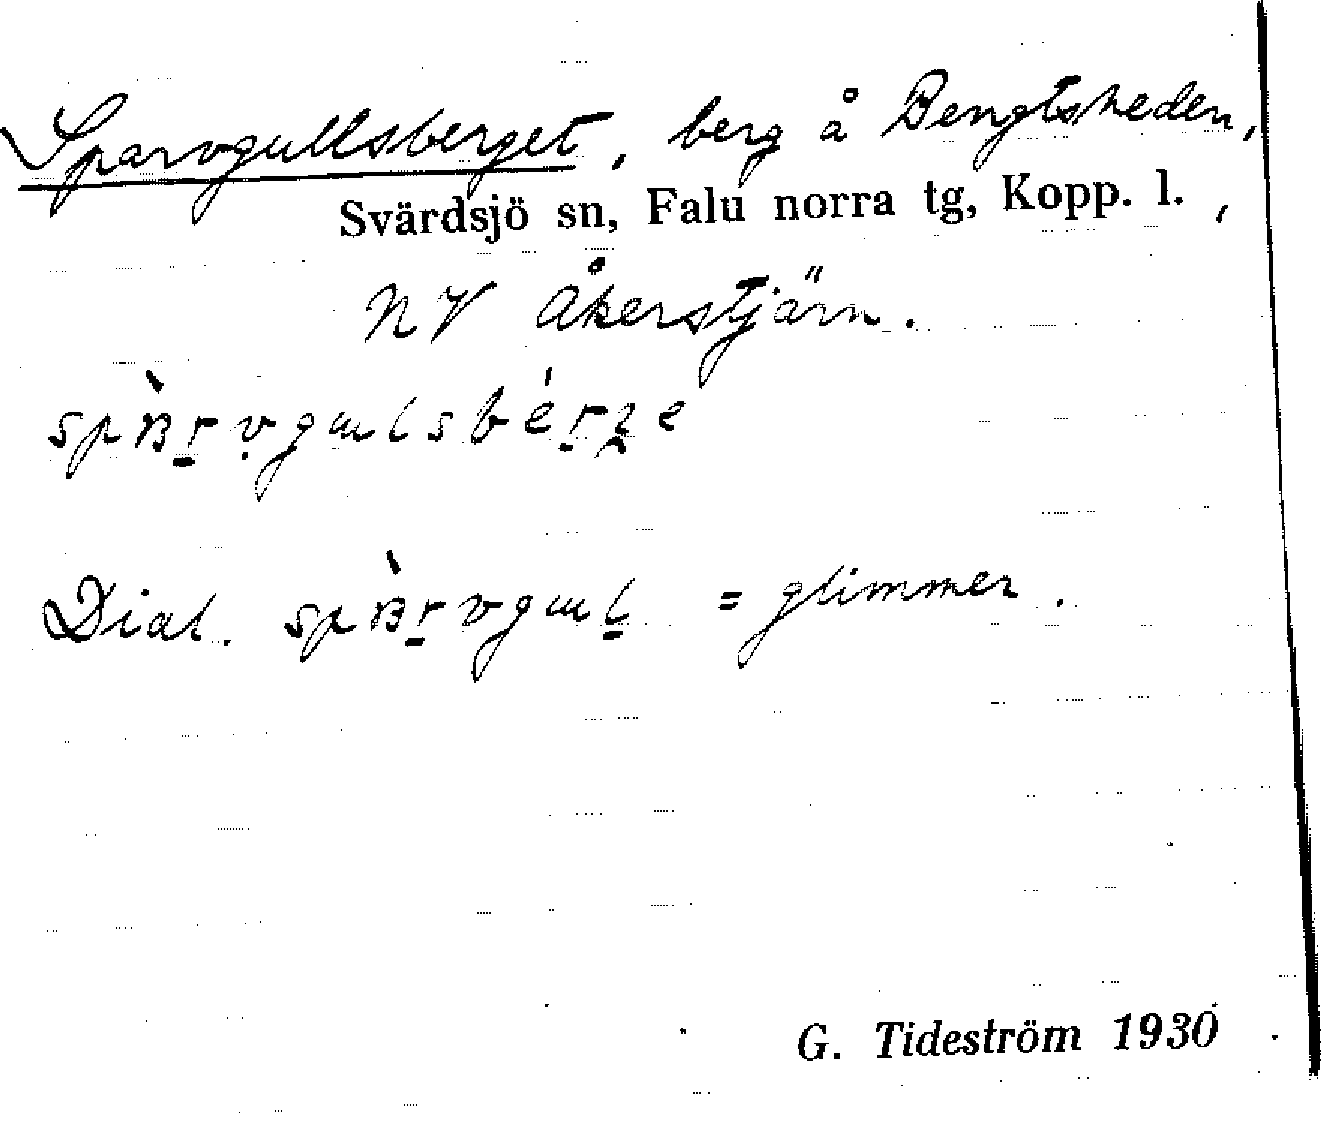 Sparvgullsberget, berg å Bengtsheden,
Svärdsjö sn, Falu norra tg, Kopp. l.,
NV Åkerstjärn.
Dial. = glimmer.
G. Tideström 1930